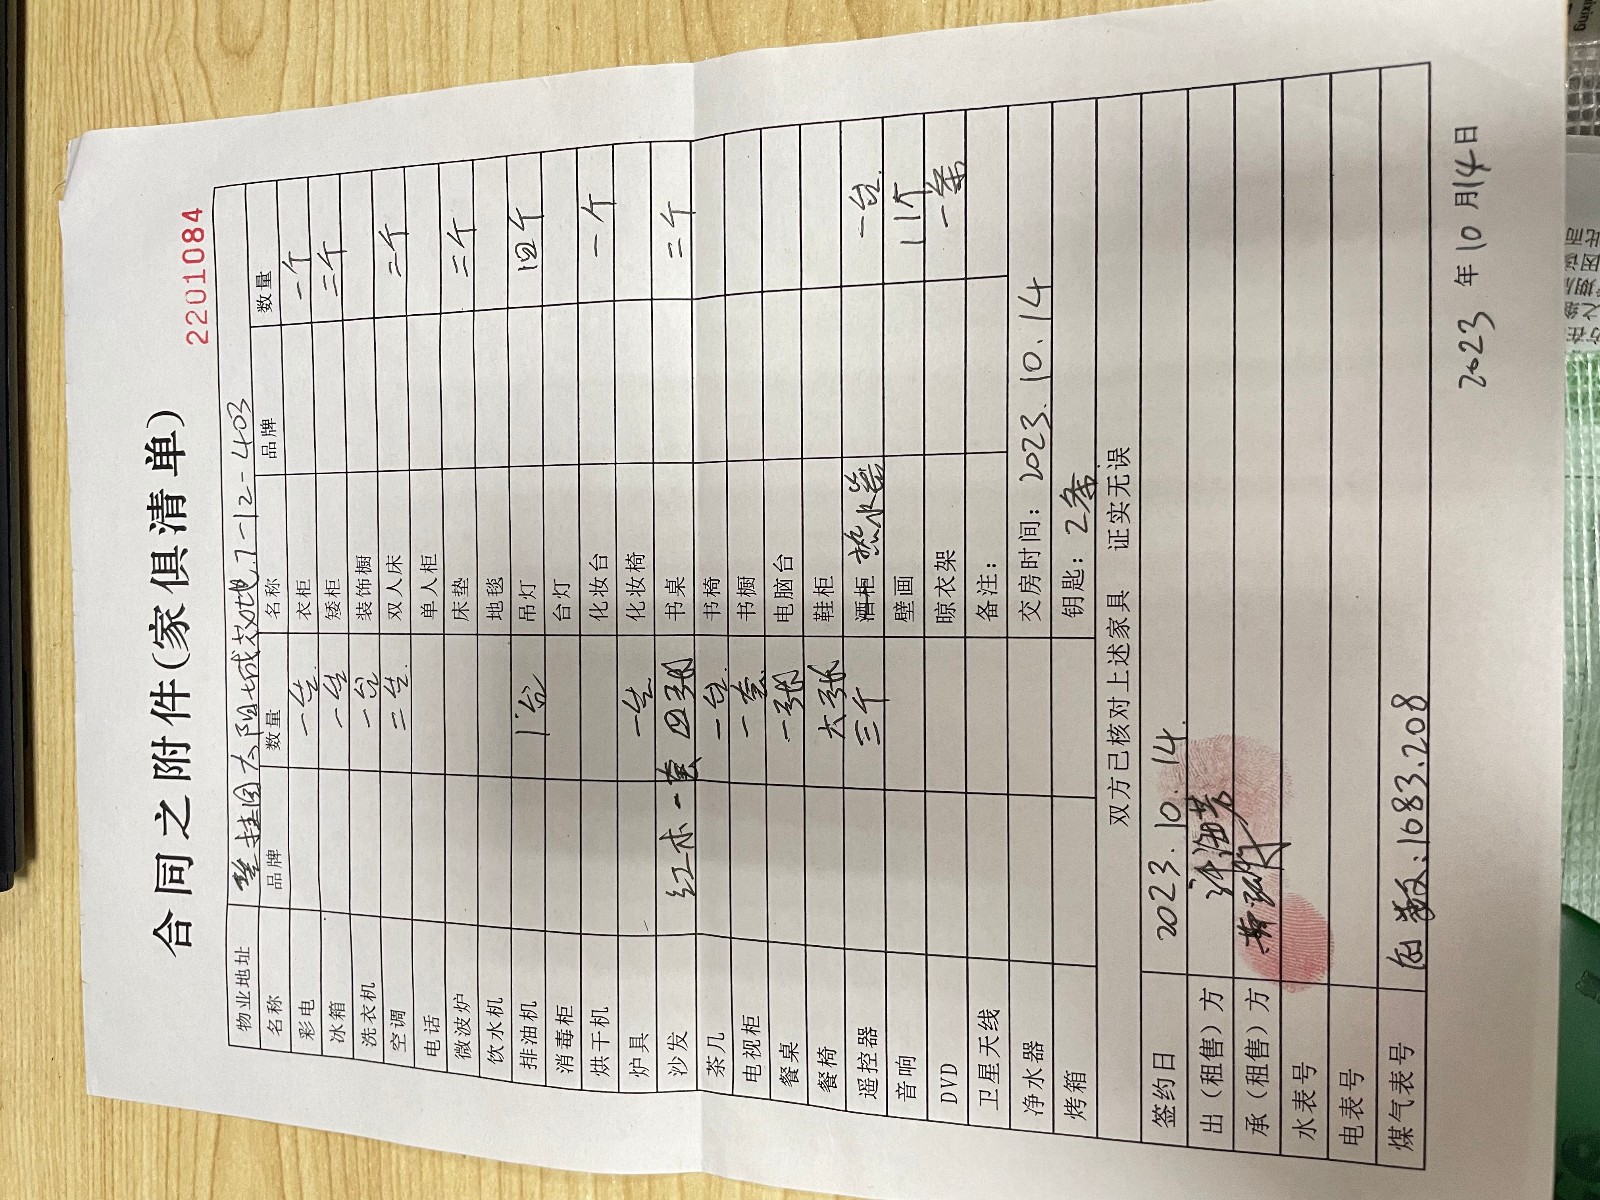 合同之附件(家俱清单)
2201084
物业地址 碧桂园太阳城效地7-12-403
名称 品牌 数量 名称 品牌 数量
彩电 一台 衣柜 一个
冰箱 一台 矮柜 三个
洗衣机 一台 装饰橱
空调 三台 双人床 二个
电话 单人柜
微波炉 床垫 二个
饮水机 地毯
排油机 1台 吊灯 四个
消毒柜 台灯
烘干机 化妆台 一个
炉具 一台 化妆椅
沙发 红木一套 四张 书桌 二个
茶几 二台 书椅
电视柜 一套 书橱
餐桌 一张 电脑台
餐椅 六张 鞋柜
遥控器 三个 酒柜 热水器 一台
音响 壁画 11个
DVD 晾衣架 一条
卫星天线 备注:
净水器 交房时间: 2023.10.14
烤箱 钥匙: 2条
双方已核对上述家具 证实无误
签约日 2023.10.14.
出(租售)方
承(租售)方
水表号
电表号
煤气表号 1083.208
2023 年 10 月 14 日